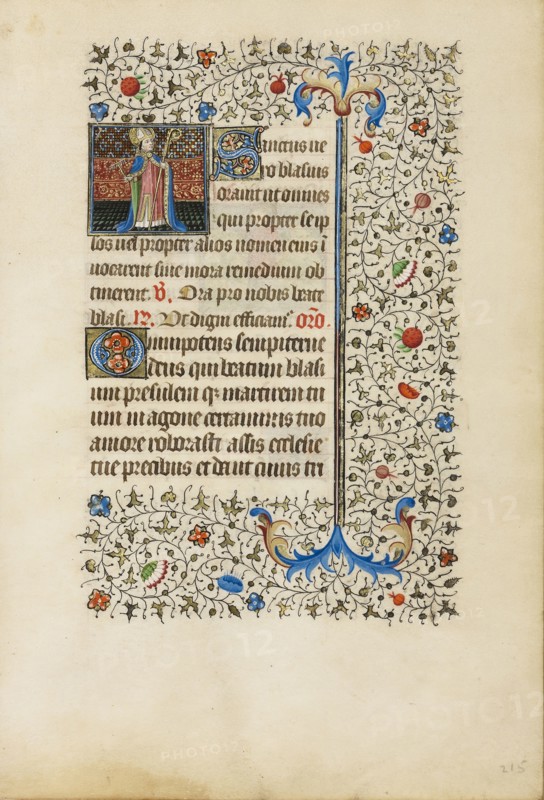 Sanctus ue
ro blasius
orauit ut omnes
qui propter se ip
sos uel propter alios nomen eius ī
uocarent sine mora remedium ob
tinerent. ℣. Ora pro nobis beate
blasi. ℟. Vt digni efficiam᷒. orō.
Omnipotens sempiterne
deus qui beatum blasi
um presulem q᷒ martirem tu
um in agone certaminis tuo
amore roborasti assis ecclesie
tue precibus et da ut cuius tri
215
PHOTO12